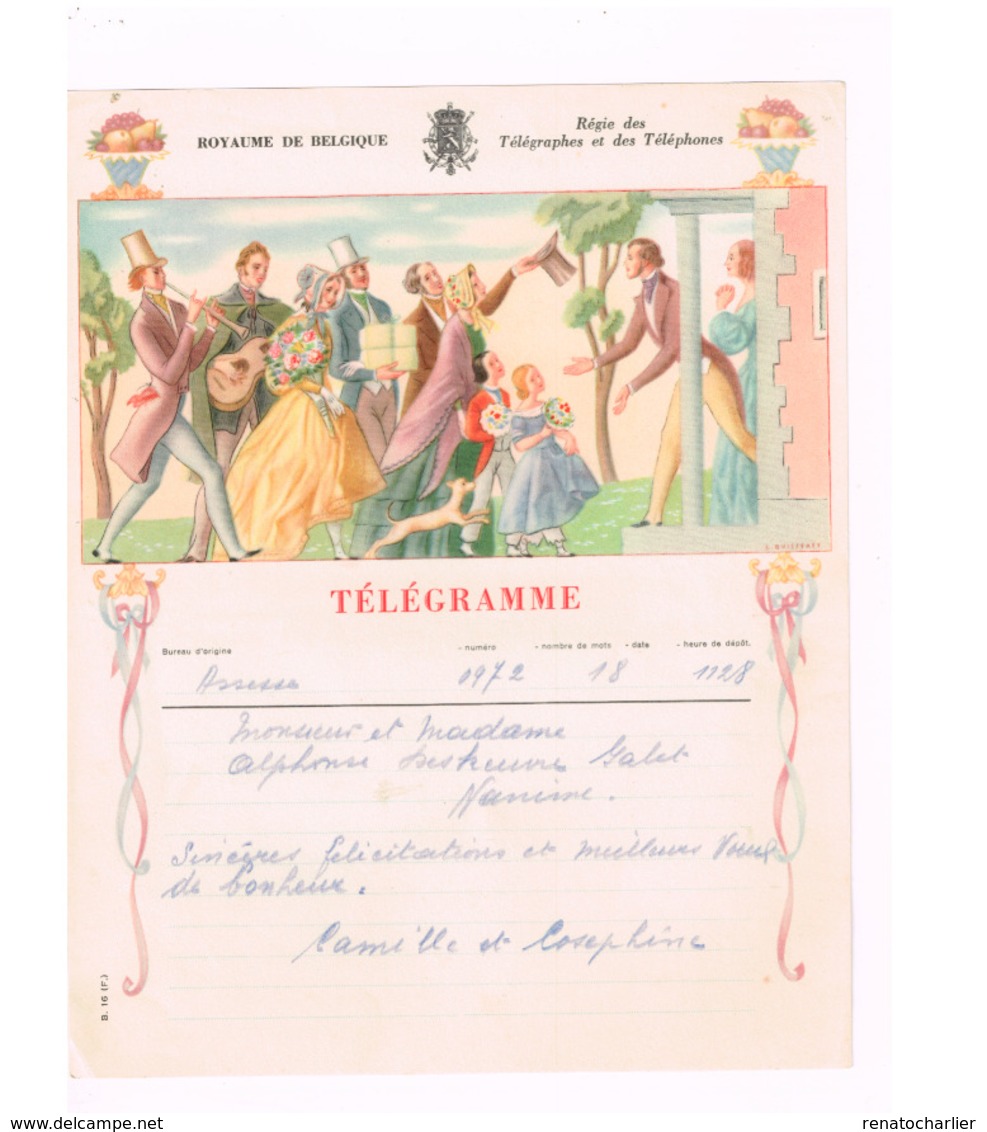 ROYAUME DE BELGIQUE
Régie des
Télégraphes et des Téléphones
TÉLÉGRAMME
Bureau d'origine - numéro - nombre de mots - date - heure de dépôt.
Assesse 0972 18 1128
Monsieur et Madame
Alphonse Galet
Naninne.
Sincères félicitations et meilleurs Voeux
de bonheur.
Camille et Cosephine
B. 16 (F.)
www.delcampe.net
renatocharlier